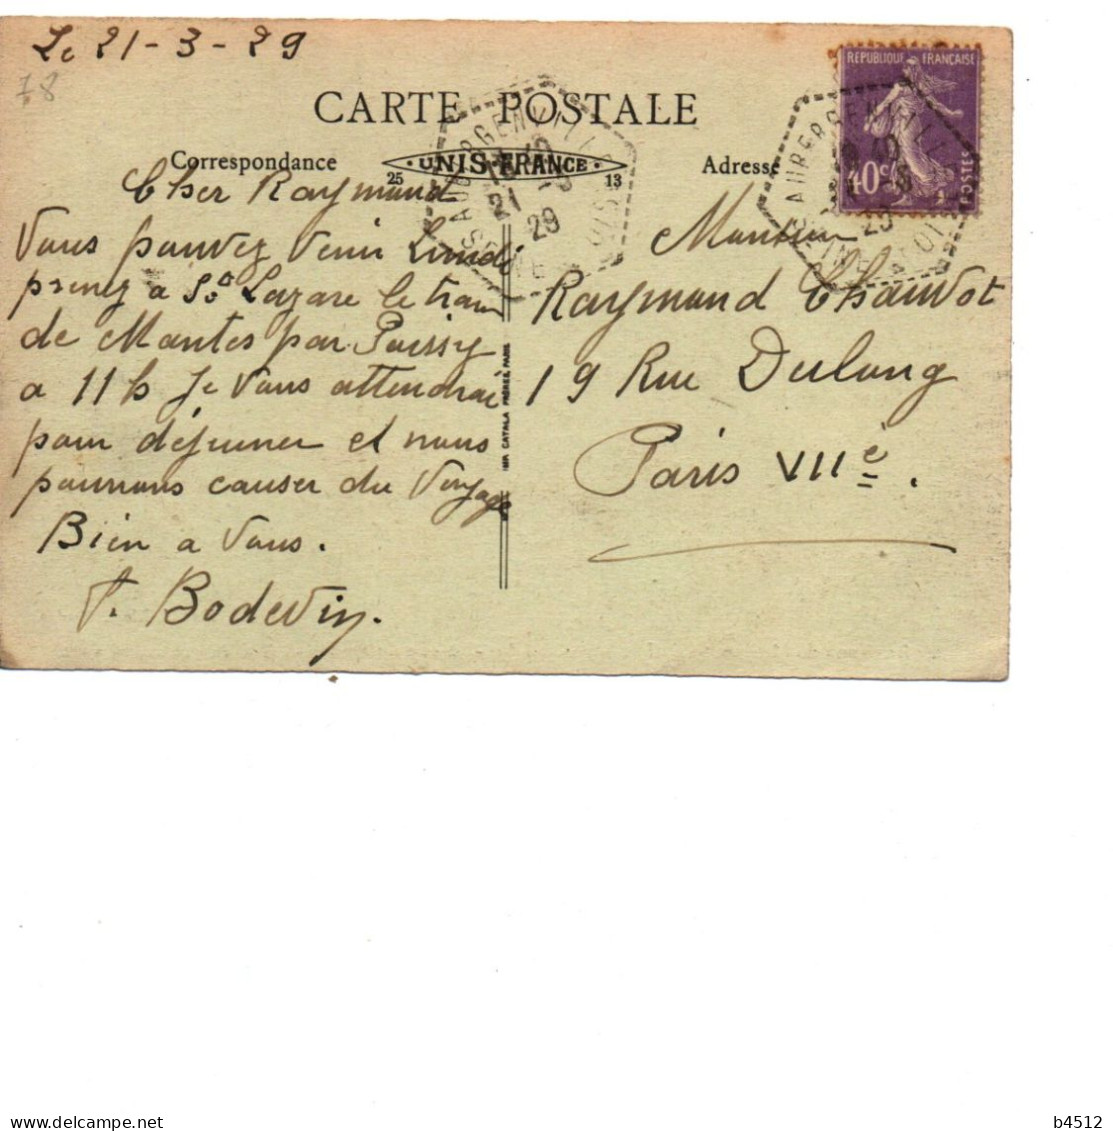 Le 21-3-29
78
CARTE POSTALE
Correspondance
UNIS FRANCE
25
13
Adresse
REPUBLIQUE FRANÇAISE
40c
POSTES
AUBERGENVILLE
SEINE & OISE
21 -3
29
AUBERGENVILLE
SEINE & OISE
29
Cher Raymond
Vous pouvez venir Lundi
prenez a St Lazare le train
de Mantes par Poissy
a 11h Je vous attendrai
pour déjeuner et nous
pourrons causer du Voyage
Bien a Vous.
P. Bodevin.
IMP. CATALA FRÈRES, PARIS
Monsieur
Raymond Chauvot
19 Rue Dulong
Paris VIIè.
b4512